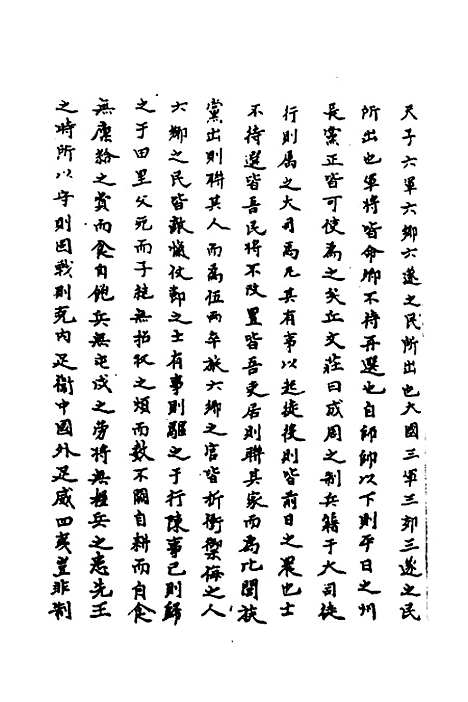 天子六軍六鄉六遂之民所出也大國三軍三郊三遂之民
所出也軍將皆命卿不待再選也自師帥以下則平日之州
長黨正皆可使為之矣丘文莊曰成周之制兵籍于大司徒
行則屬之大司馬凡其有事以起徒役則皆前日之農也士
不待選皆吾民將不改置皆吾吏居則聯其家而為比閭族
黨出則聯其人而為伍兩卒旅六鄉之官皆折衝禦侮之人
六鄉之民皆敵愾仗節之士有事則驅之于行陳事已則歸
之于田里父死而子繼無招收之煩而數不闕自耕而自食
無廩給之費而食自飽兵無屯戍之勞將無握兵之患先王
之時所以守則固戰則克內足衛中國外足威四夷豈非制